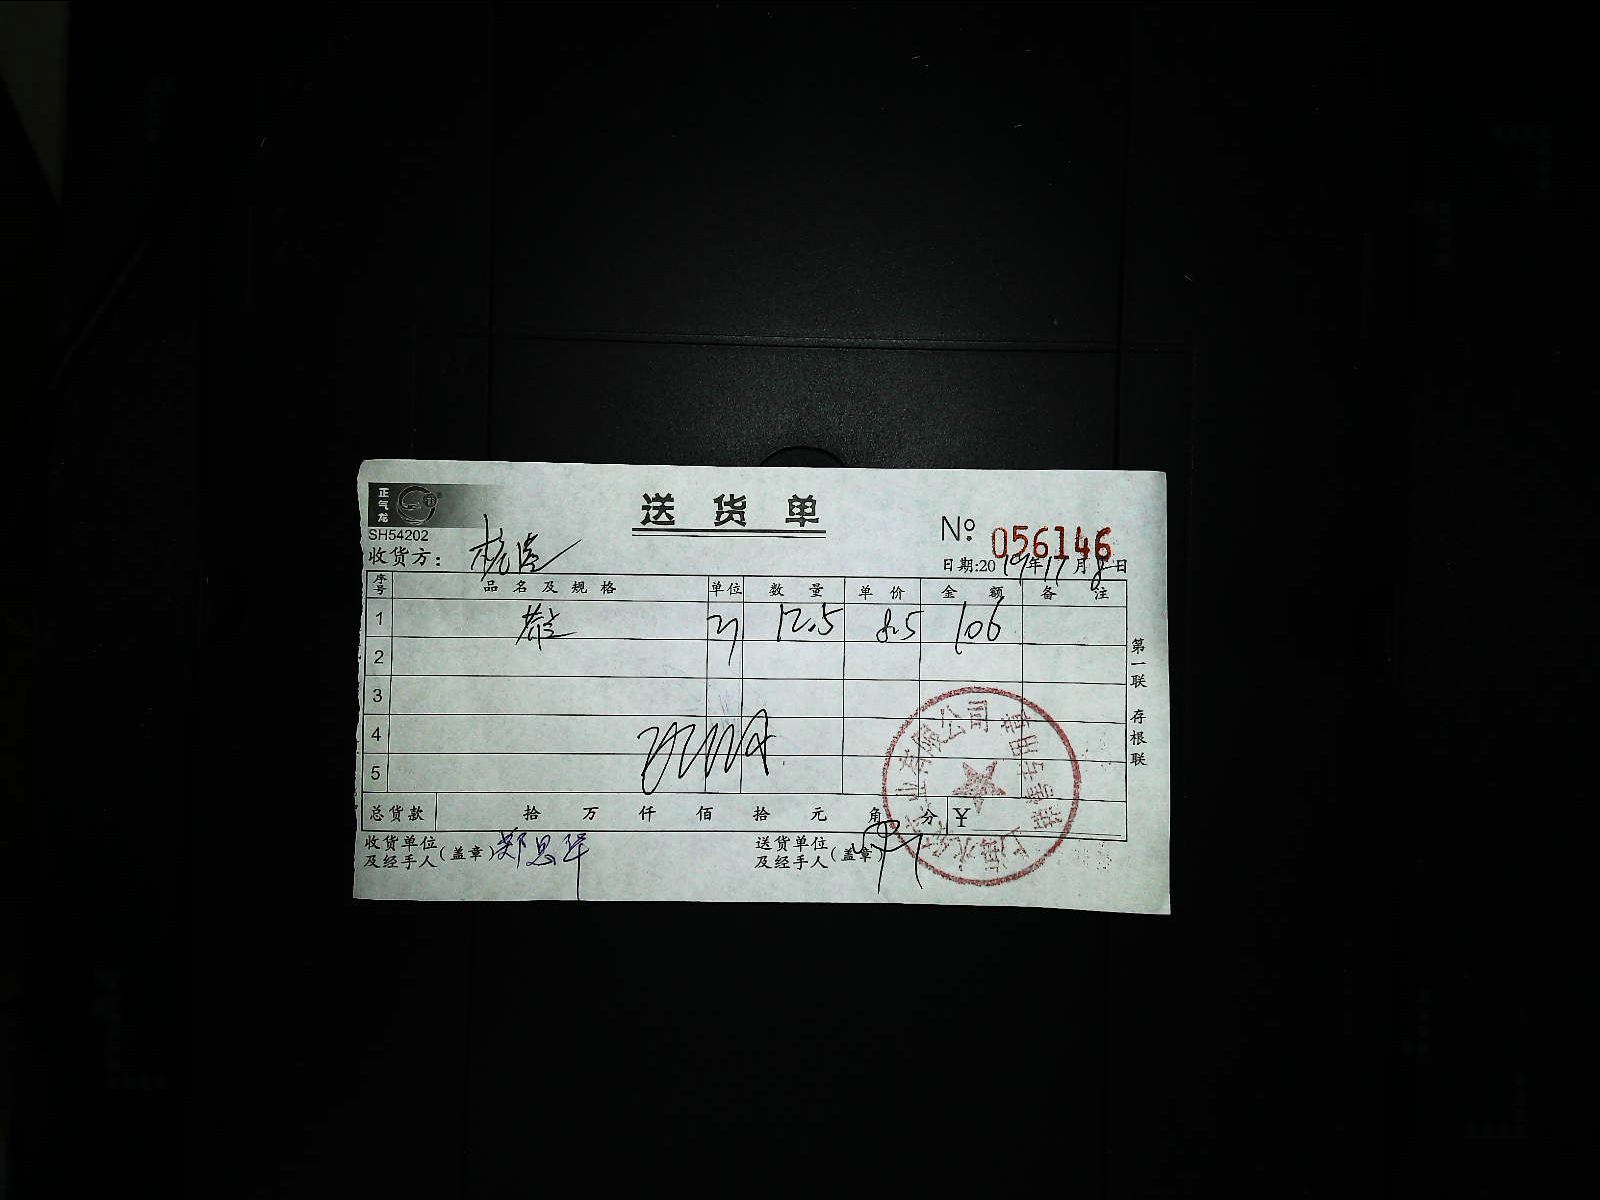 正气龙
送货单
SH54202
№ 056146
收货方：
日期:2019年11月8日
序号 品名及规格 单位 数量 单价 金额 备注
1 12.5 8.5 106
2
3
4
5
总货款 拾 万 仟 佰 拾 元 角 分 ¥
收货单位及经手人(盖章) 郑思军
送货单位及经手人(盖章)
第一联 存根联